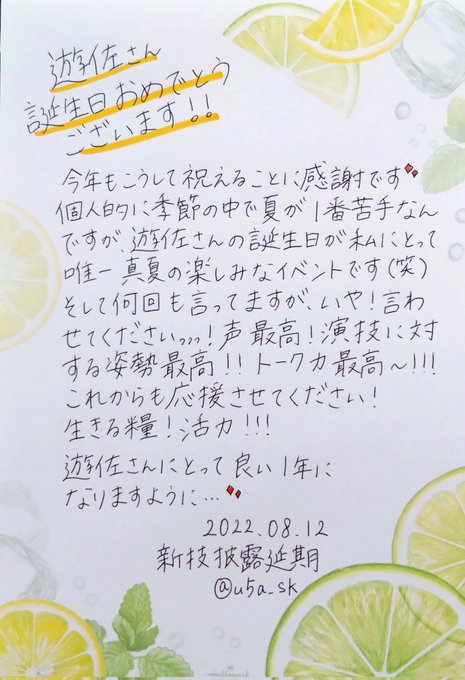 遊佐さん
誕生日おめでとう
ございます!!
今年もこうして祝えることに感謝です
個人的に季節の中で夏が1番苦手なん
ですが、遊佐さんの誕生日が私にとって
唯一真夏の楽しみなイベントです(笑)
そして何回も言ってますが、いや!言わ
せてくださいっっっ!声最高!演技に対
する姿勢最高!!トーク力最高〜!!!
これからも応援させてください!
生きる糧!活力!!!
遊佐さんにとって良い1年に
なりますように…
2022.08.12
新技披露延期
@u5a_sk
Hallmark